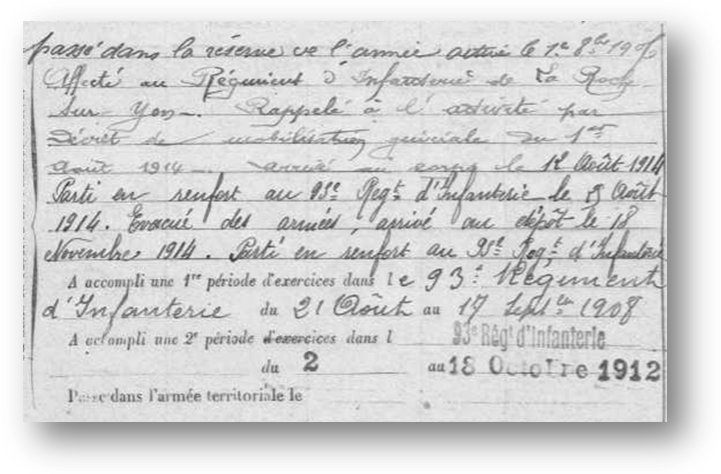 passé dans la réserve de l'armée active le 1er 8bre 1906
Affecté au Régiment d'Infanterie de La Roche
sur-Yon. Rappelé à l'activité par
Décret de mobilisation générale du 1er
août 1914. arrivé au corps le 12 Août 1914
Parti en renfort au 93e Regt d'Infanterie le Août
1914. Evacué des armées, arrivé au dépôt le 18
Novembre 1914. Parti en renfort au 93e Regt d'Infanterie
A accompli une 1re période d'exercices dans le 93e Régiment
d'Infanterie du 21 Août au 17 Septbre 1908
A accompli une 2e période d'exercices dans l 93e Régt d'Infanterie
du 2 au 18 Octobre 1912
Passé dans l'armée territoriale le